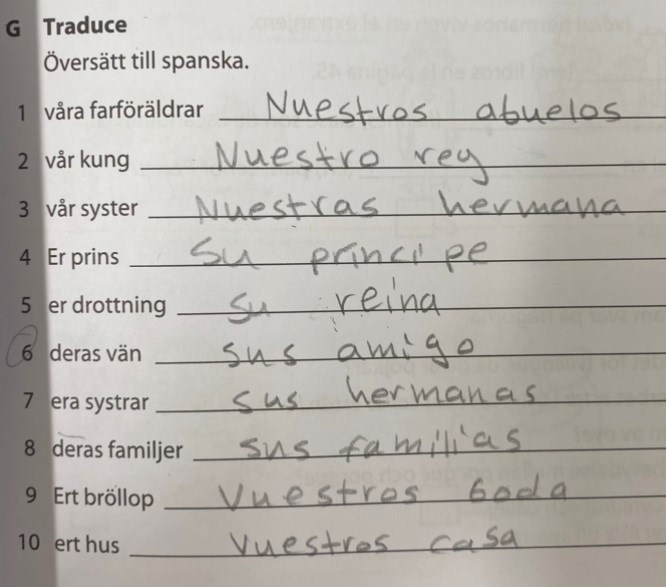 G Traduce
Översätt till spanska.
1 våra farföräldrar Nuestros abuelos
2 vår kung Nuestro rey
3 vår syster Nuestras hermana
4 Er prins Su princi pe
5 er drottning Su reina
6 deras vän sus amigo
7 era systrar sus hermanas
8 deras familjer sus familias
9 Ert bröllop Vuestros boda
10 ert hus Vuestros casa